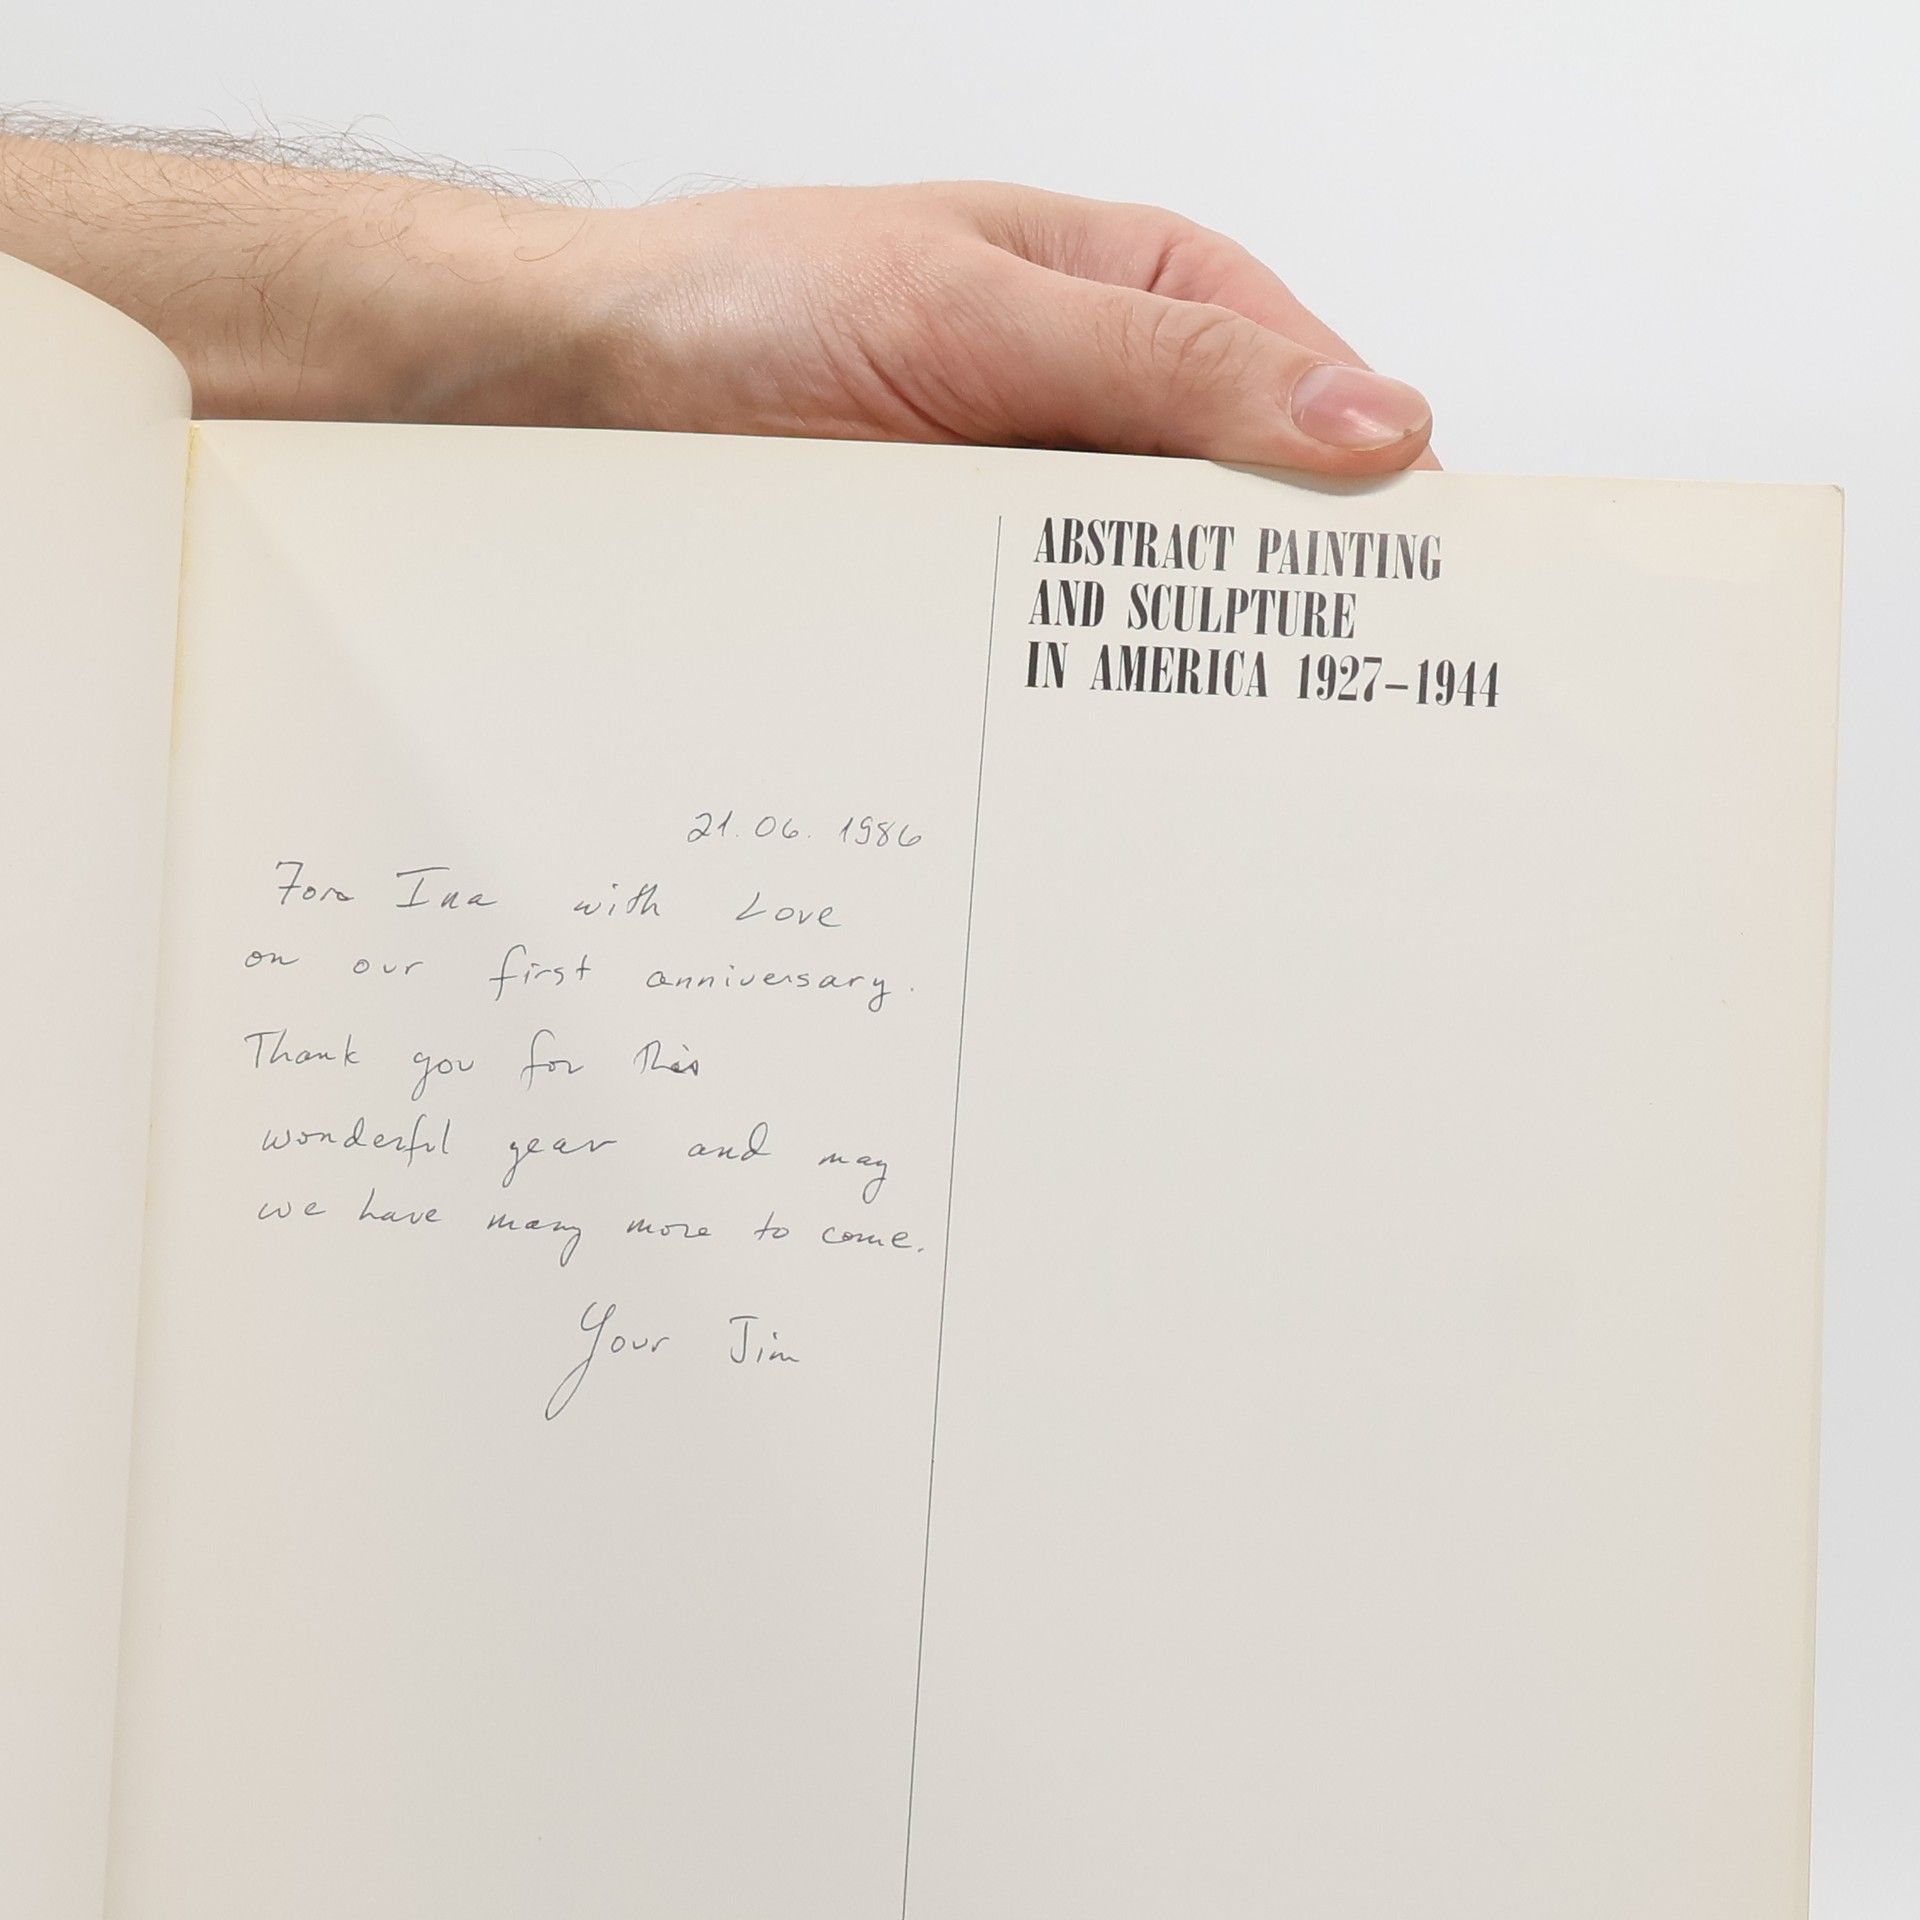 ABSTRACT PAINTING
AND SCULPTURE
IN AMERICA 1927–1944
21.06.1986
For Ina with Love
on our first anniversary.
Thank you for this
wonderful year and may
we have many more to come.
Your Jim